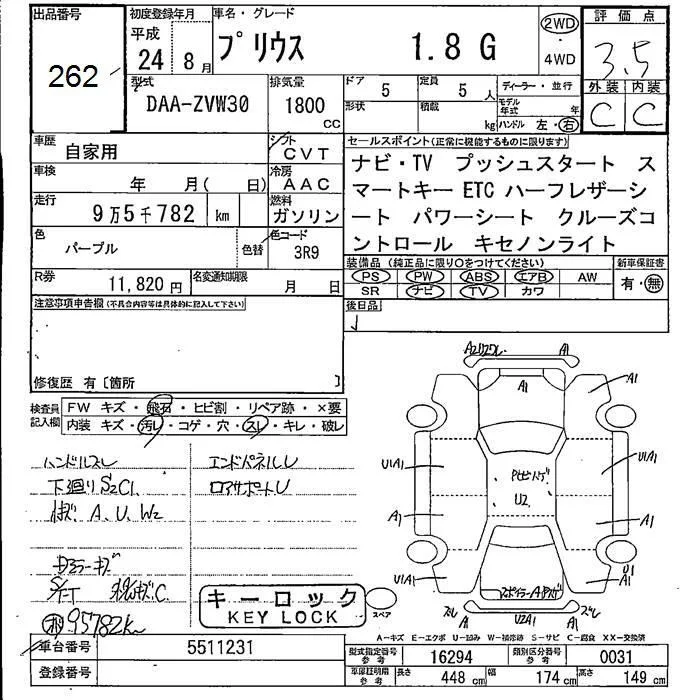 出品番号
262
初度登録年月
平成
24 8月
車名・グレード
プリウス 1.8 G
2WD
・
4WD
評価点
3.5
外装 内装
C C
型式
DAA-ZVW30
排気量
1800
cc
ドア
5
定員
5人
形状
積載
kg
ディーラー・並行
モデル年式 年
ハンドル 左・右
車歴
自家用
シフト
CVT
車検
年 月( 日)
冷房
AAC
走行
9万5千782 km
燃料
ガソリン
色
パープル
色替
色コード
3R9
R券
11,820 円
名変通知期限
月 日
セールスポイント(正常に機能するものに限ります)
ナビ・TV プッシュスタート ス
マートキー ETC ハーフレザーシ
ート パワーシート クルーズコ
ントロール キセノンライト
装備品(純正品に限り○をつけてください)
PS PW ABS エアB AW
SR ナビ TV カワ
新車保証書
有・無
後日品
注意事項申告欄(不具合内容等は具体的に記入して下さい)
修復歴 有〔箇所 〕
検査員
記入欄
FW キズ・飛石・ヒビ割・リペア跡・×要
内装 キズ・汚レ・コゲ・穴・スレ・キレ・破レ
ハンドルスレ
下廻り S2C1
A、U、W2
エンドパネルU
ロアサポートU
95782km
キーロック
KEY LOCK
スペア
A1
A1
A1
A1
U1A1
U1A1
A1
A1
U2
U1A1
A1
U1
U2A1
スレ
スレ
A-キズ E-エクボ U-凹み W-補修跡 S-サビ C-腐食 XX-交換済
車台番号
5511231
登録番号
型式指定番号
参考
16294
類別区分番号
参考
0031
車庫証明用
参考
長さ 448 cm 幅 174 cm 高さ 149 cm